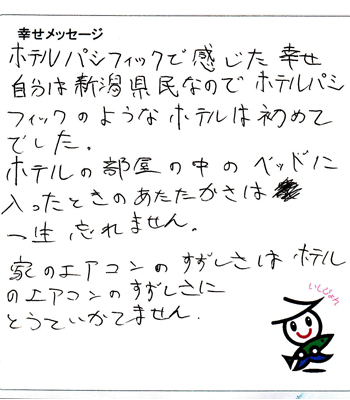 幸せメッセージ
ホテルパシフィックで感じた幸せ
自分は新潟県民なのでホテルパシ
フィックのようなホテルは初めて
でした.
ホテルの部屋の中のベッドに
入ったときのあたたかさは
一生忘れません.
家のエアコンのすずしさはホテル
のエアコンのすずしさに
とうていかてません.